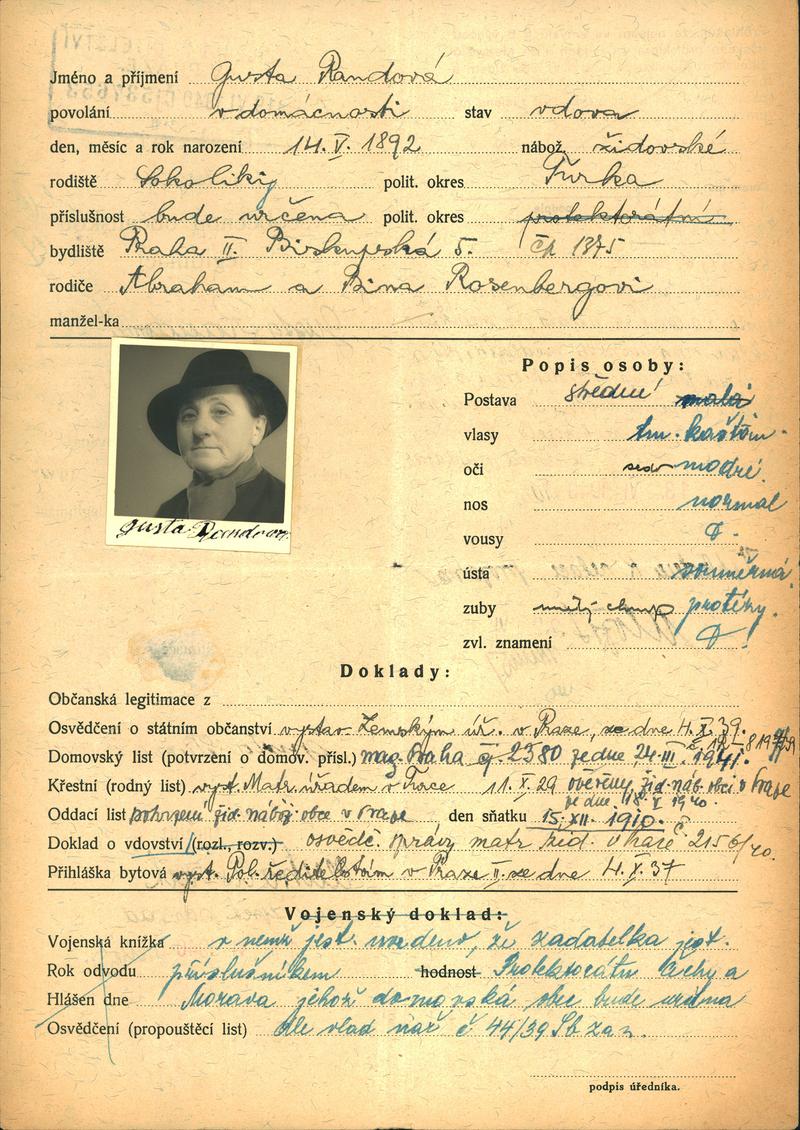 Jméno a příjmení Gusta Randová
povolání v domácnosti stav vdova
den, měsíc a rok narození 14. V. 1892 nábož. židovské
rodiště Sokoliky polit. okres Turka
příslušnost bude určena polit. okres protektorátní
bydliště Praha II. Biskupská 5. čp 1375
rodiče Abraham a Bina Rosenbergovi
manžel-ka
Gusta Randova
Popis osoby:
Postava střední malá
vlasy tm. kaštan.
oči modré.
nos normal
vousy
ústa souměrná
zuby protézy.
zvl. znamení
Doklady:
Občanská legitimace z
Osvědčení o státním občanství vystav. Zemským úř. v Praze, ze dne 4. X. 39.
Domovský list (potvrzení o domov. přísl.) mag. Praha čj. 2380 ze dne 24. III. 1941.
Křestní (rodný list) vyst. Matr. úřadem v Turce 11. X. 29 ověřeny žid. náb. obcí v Praze
ze dne 18. V. 1940.
Oddací list potvrzení žid. nábož. obce v Praze den sňatku 15. XII. 1910.
Doklad o vdovství (rozl., rozv.) osvědč. správy matr. žid. v Praze č. 2156/40.
Přihláška bytová vyst. Pol. ředitelstvím v Praze II. ze dne 4. X. 37
Vojenský doklad:
Vojenská knížka v nemž jest. uvedeno, že žadatelka jest.
Rok odvodu příslušníkem hodnost Protektorátu Čechy a
Hlášen dne Morava jehož domovská obec bude určena
Osvědčení (propouštěcí list) dle vlad. nař. č 44/39 Sb. z a n.
podpis úředníka.